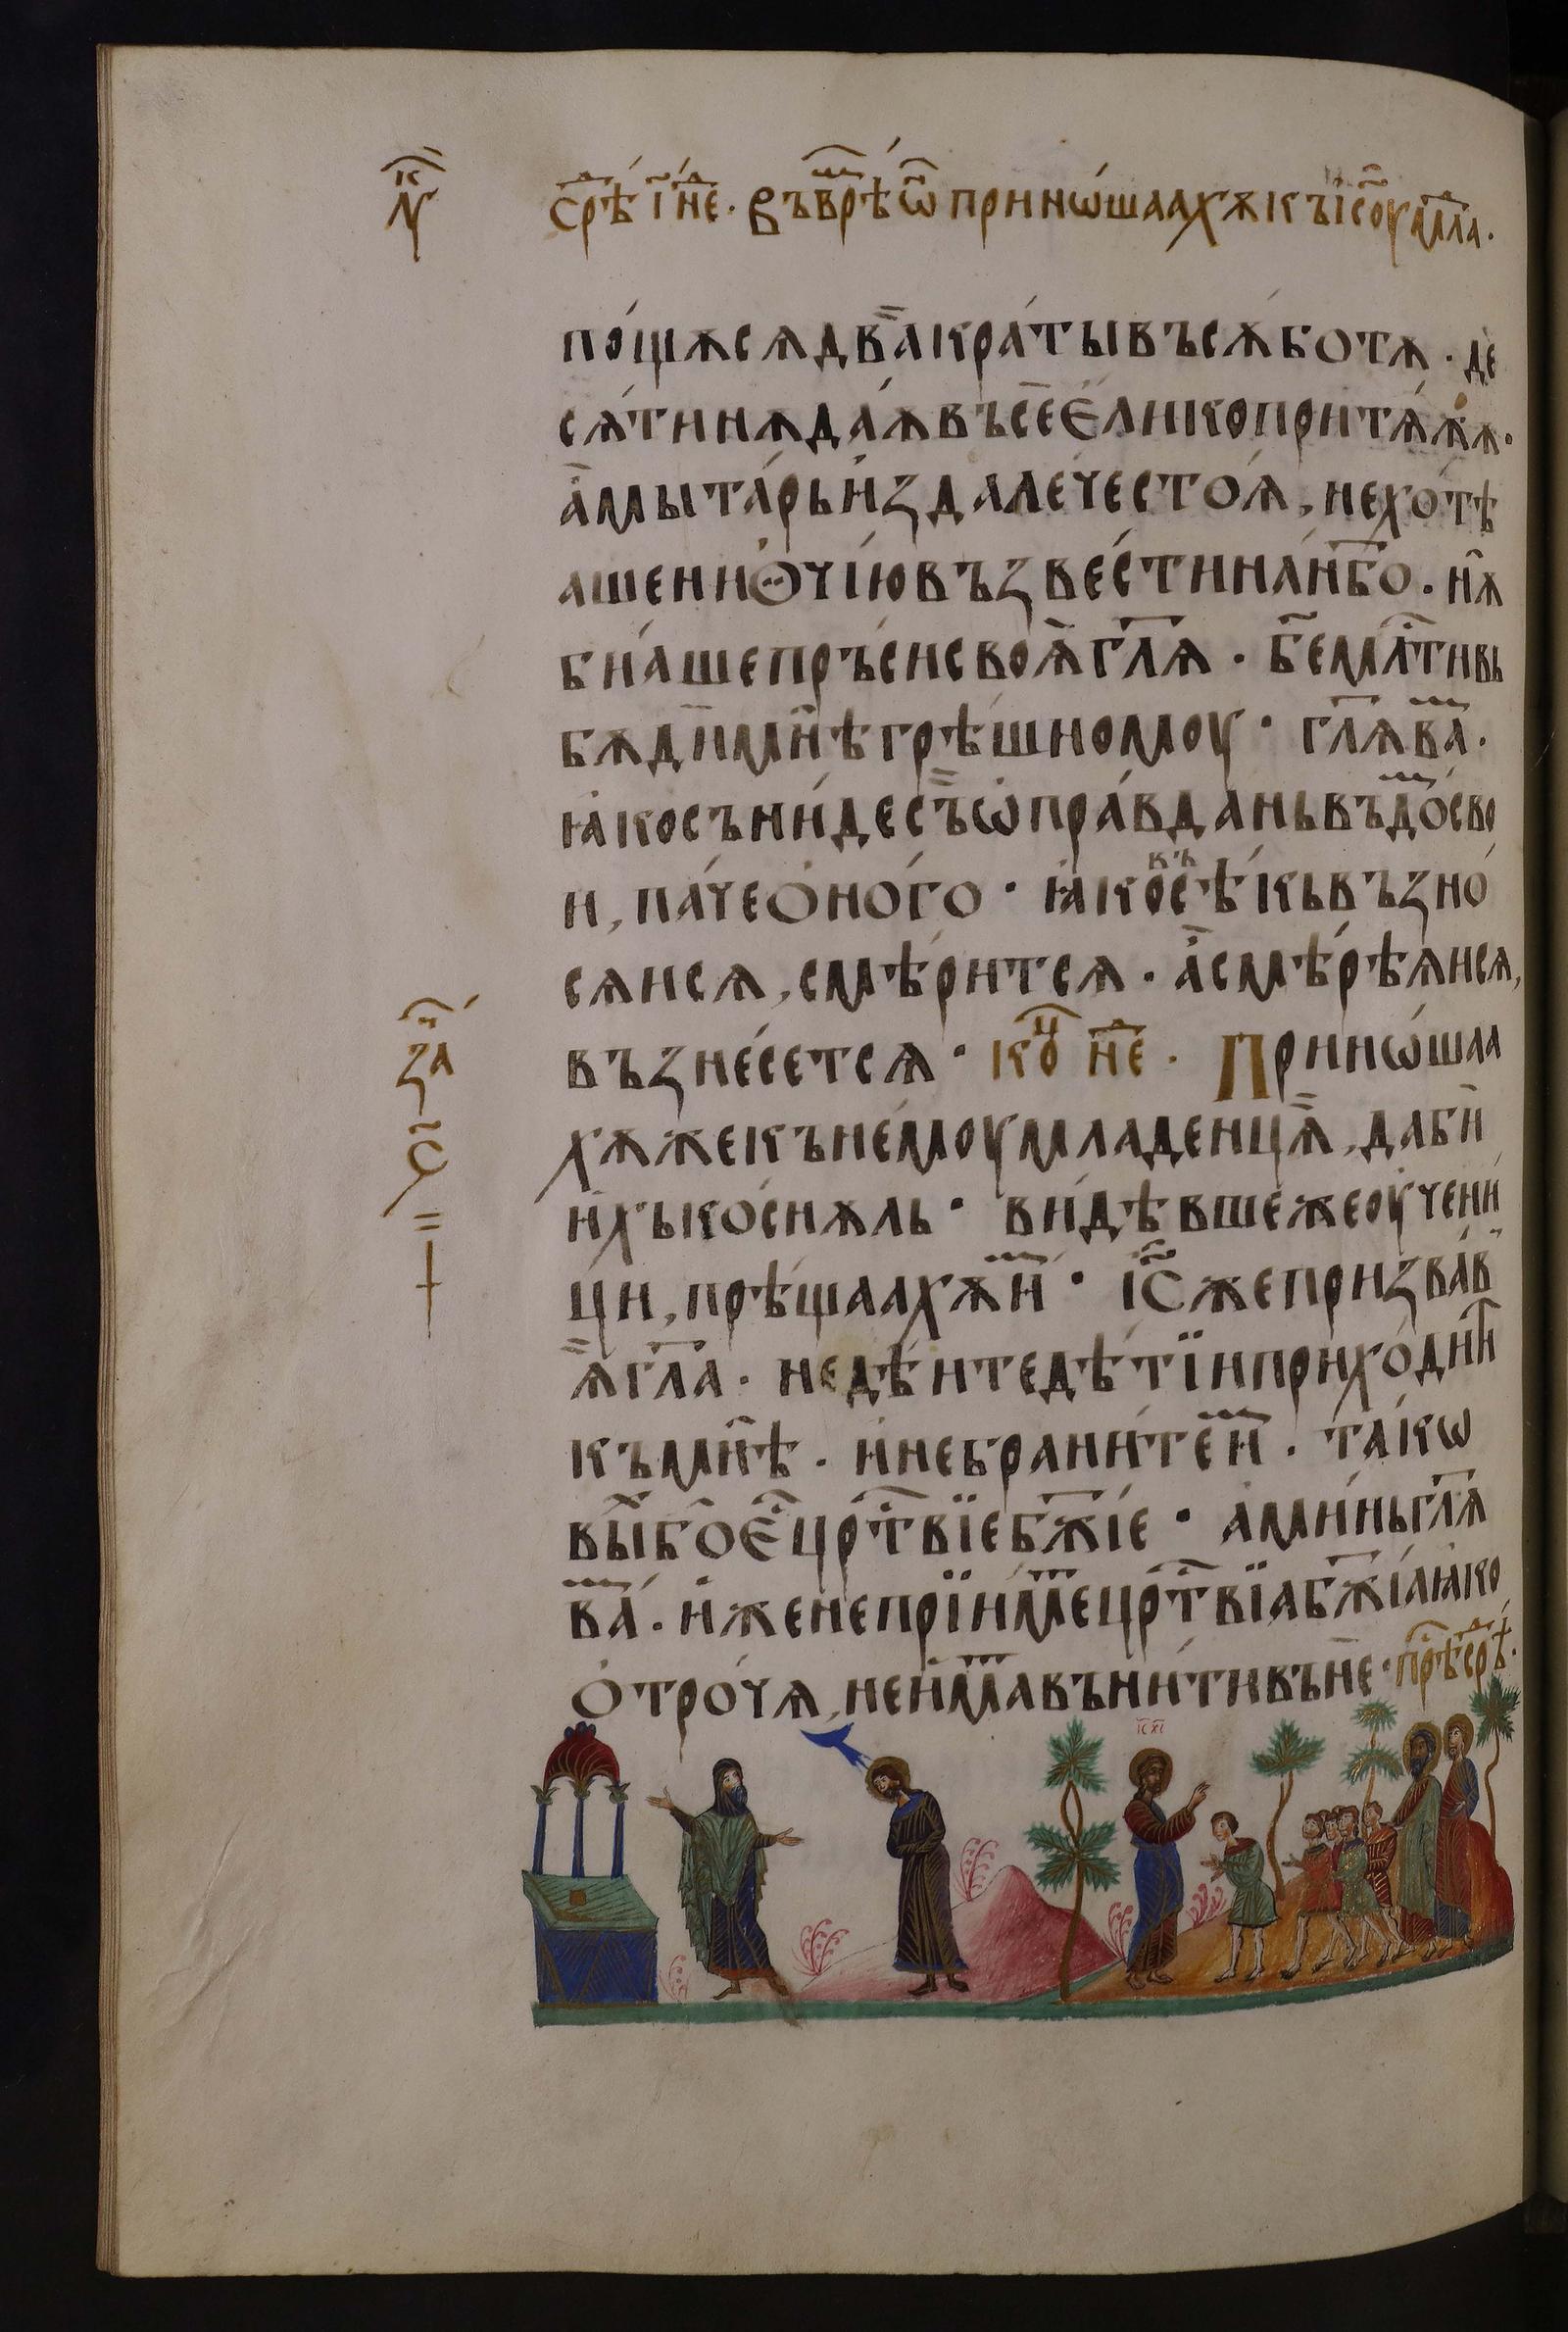 к҃ н҃
срѣ і҃ не҃. Въ врѣ ѡ҃ приношаахѫ къ іс҃оу мл҃а.
пощѫсѧ двакраты въ сѫботѫ. де
сѧтинѫ даѫ въсе елико притѧжѫ.
а мытарь издалече стоѧ, не хотѣ
аше ни очію възвести на нб҃о. нѫ
биаше пръси своѧ гл҃ѧ. бе҃ мл҃тивь
бѫди мнѣ грѣшномоу. гл҃ѫ ва.
ꙗко съниде съ ѡправдань въ до сво
и, паче оного. ꙗко въсѣкь възно
сѧисѧ, смѣритсѧ. а смѣрѣѧисѧ,
възнесетсѧ. ко҃ц не҃. Приношаа
за҃
хѫ же къ немоу младенцѧ, да би
с҃
ихь коснѫль. видѣвше же оучени
ци, прѣщаахѫ и. іс҃ же призвав
ѧ гл҃а. не дѣите дѣтїи приходии
къ мнѣ. и не браните и. такѡ
вы бо е҃ цр҃твїе бж҃іе. аминь гл҃ѧ
ва. иже не прїиме цр҃твїа бж҃іа ꙗко
отрочѧ, не има вънити въ не. прѣ срѣ.
іс҃ хс҃